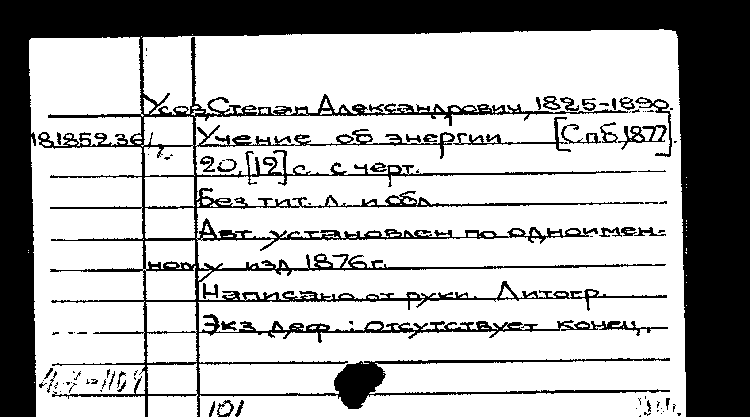 Усов, Степан Александрович, 1825-1890.
181852.36 Учение об энергии. [Спб, 1877]
20, [12] с. с черт.
Без тит. л. и обл.
Авт. установлен по одноимен-
ному изд 1876 г.
Написано от руки. Литогр.
Экз. деф.: отсутствует конец.
101